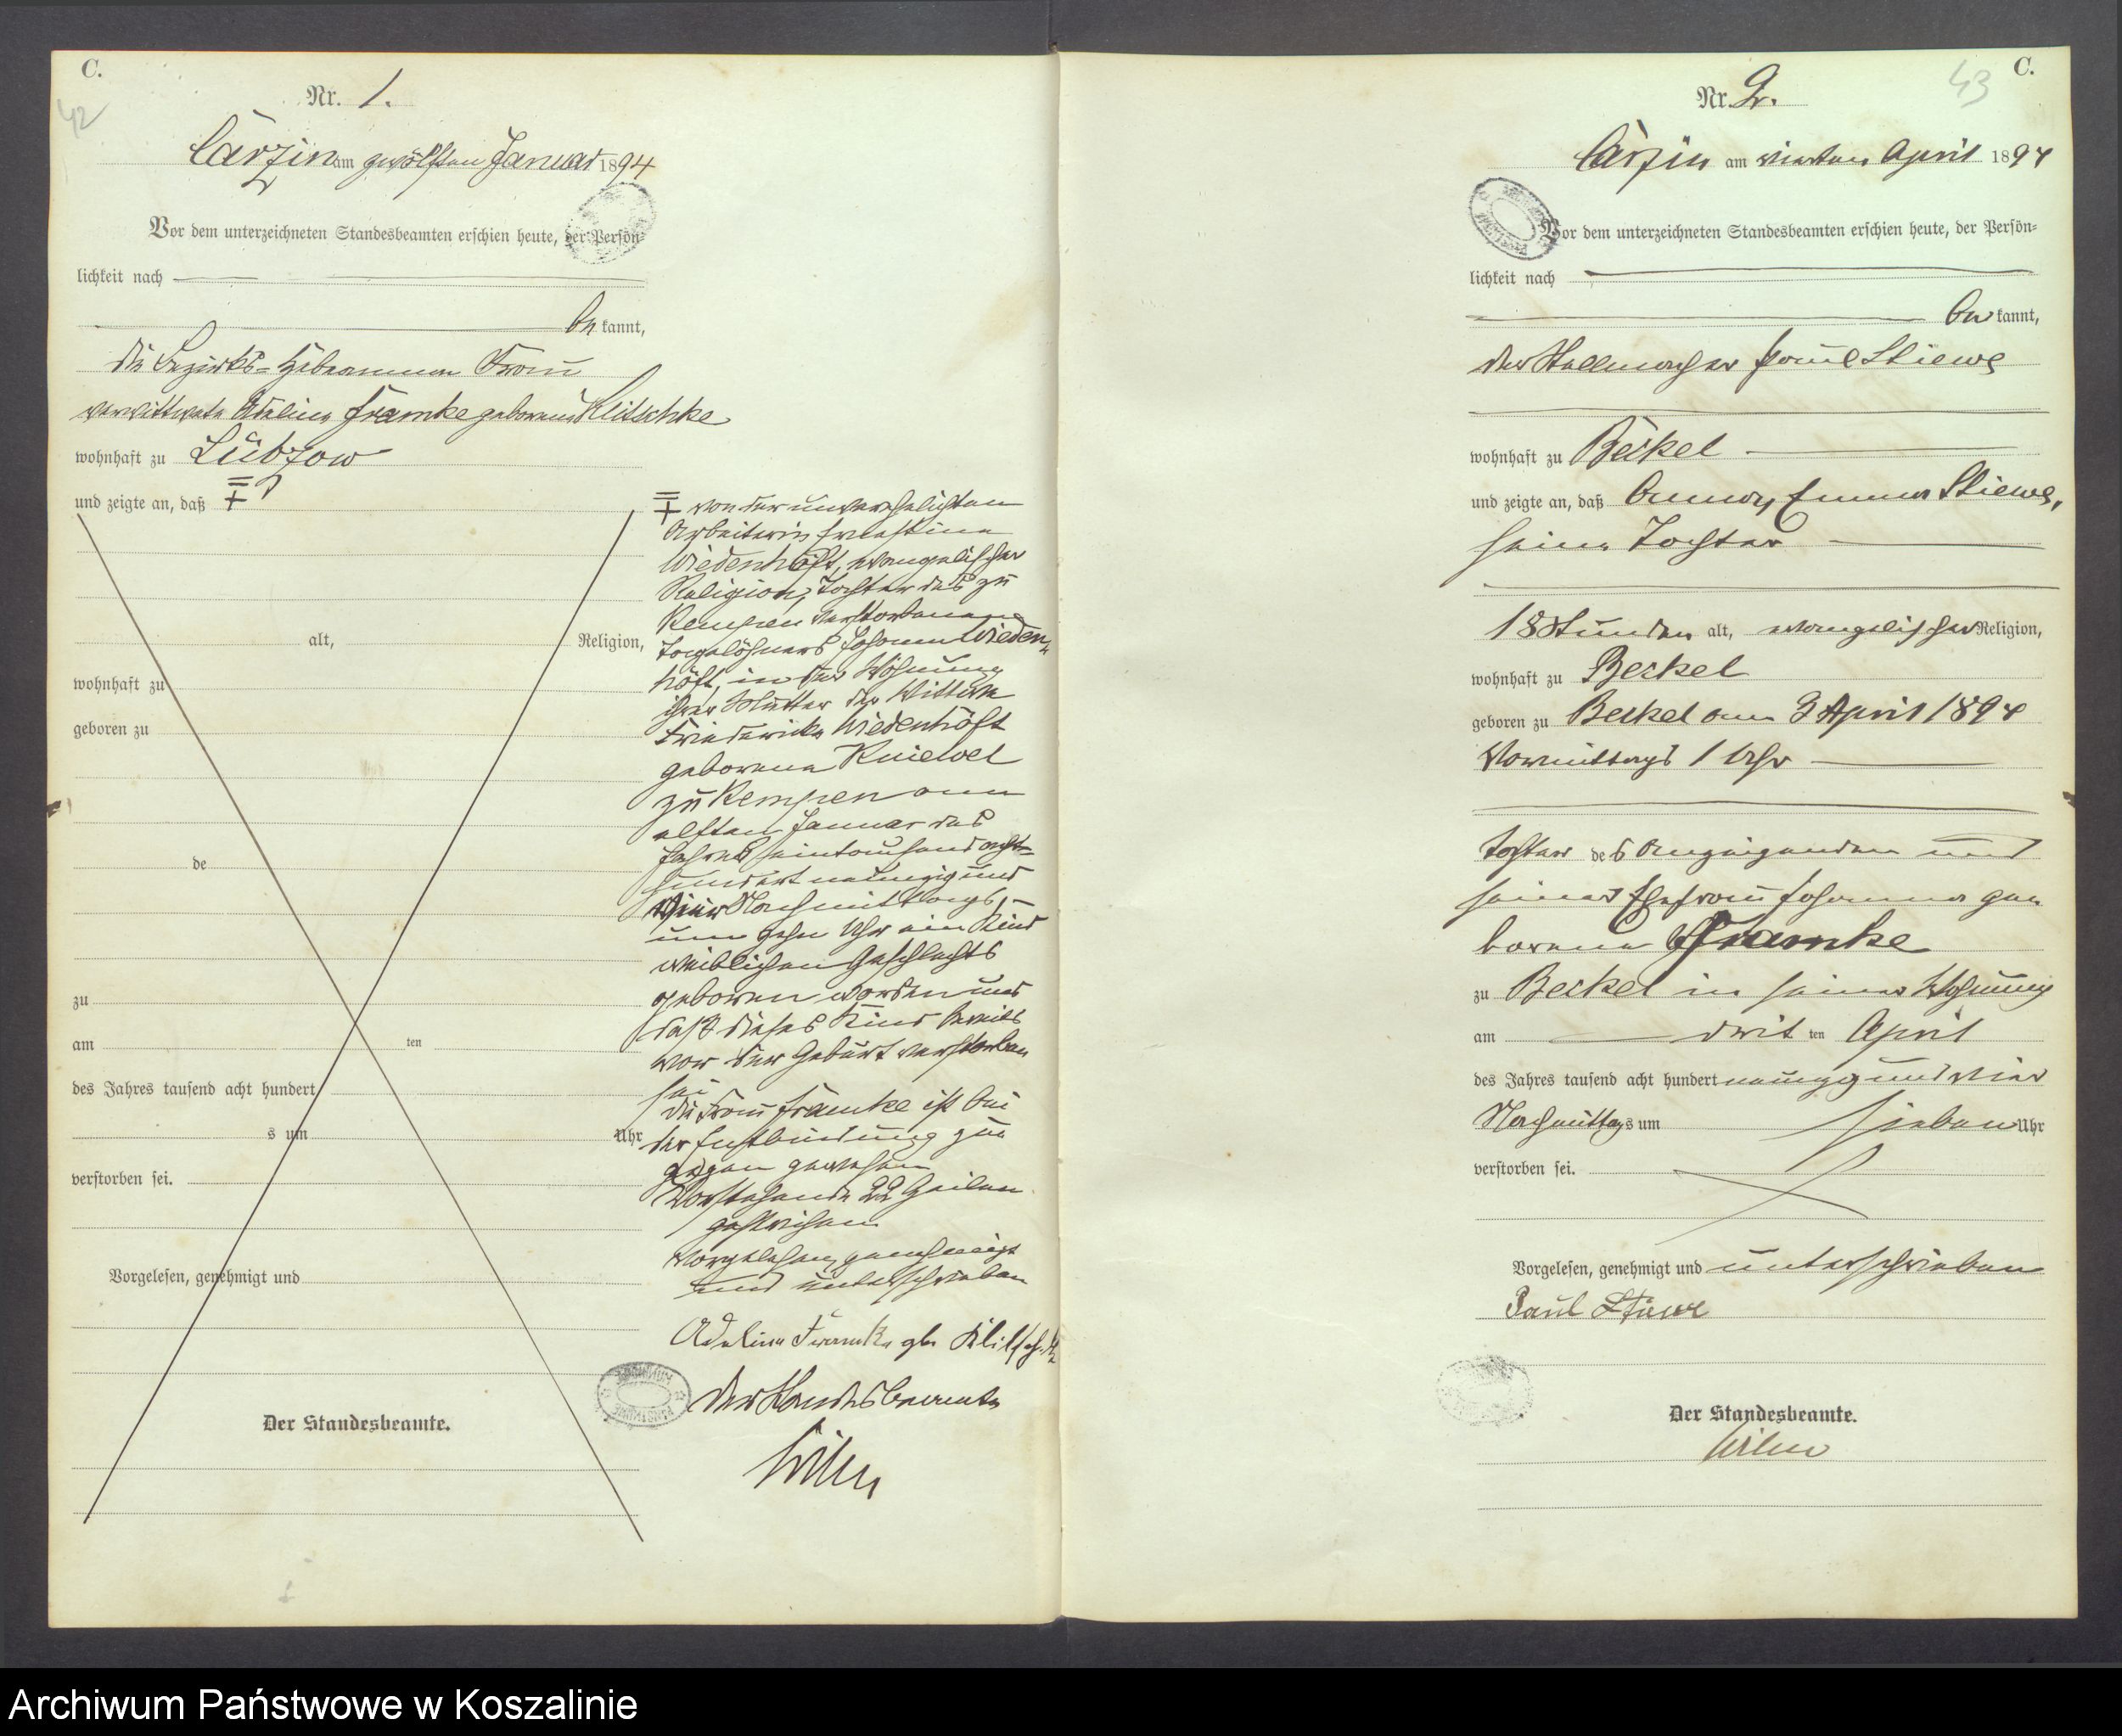 C.
42
Nr. 1.
Carzin am zwölften Januar 1894
Vor dem unterzeichneten Standesbeamten erschien heute, der Persön=
lichkeit nach
be kannt,
die Bezirks=Hebamme Frau
verwittwete Adeline Framke geborene Klitschke
wohnhaft zu Lübzow
und zeigte an, daß
alt, Religion,
wohnhaft zu
geboren zu
de
zu
am ten
des Jahres tausend acht hundert
s um Uhr
verstorben sei.
Vorgelesen, genehmigt und
Der Standesbeamte.
von der unverehelichten
Arbeiterin Ernestine
Wiedenhöft, evangelischer
Religion, Tochter des zu
Kempen verstorbenen
Tagelöhners Johann Wieden=
höft, in der Wohnung
ihrer Mutter der Wittwe
Friederike Wiedenhöft
geborene Kniewel
zu Kempen am
elften Januar des
Jahres eintausend acht=
hundert neunzig und
vier Nachmittags,
um zehn Uhr ein Kind
weiblichen Geschlechts
geboren worden und
daß dieses Kind bereits
vor der Geburt verstorben
sei
die Frau Framke ist bei
der Entbindung zu=
gegen gewesen
Vorstehende 22 Zeilen
gestrichen
Vorgelesen, genehmigt
und unterschrieben
Adeline Framke gb. Klitschke
Der Standesbeamte
C.
43
Nr. 2.
Carzin am vierten April 1894
Vor dem unterzeichneten Standesbeamten erschien heute, der Persön=
lichkeit nach
be kannt,
der Stellmacher Paul Stiewe
wohnhaft zu Beckel
und zeigte an, daß Anna, Emma Stiewe,
seine Tochter
18 Stunden alt, evangelischer Religion,
wohnhaft zu Beckel
geboren zu Beckel am 3 April 1894
Vormittags 1 Uhr
Tochter des Anzeigenden und
seiner Ehefrau Johanna ge=
borene Framke
zu Beckel in seiner Wohnung
am drit ten April
des Jahres tausend acht hundert neunzig und vier
Nachmittags um sieben Uhr
verstorben sei.
Vorgelesen, genehmigt und unterschrieben
Paul Stiewe
Der Standesbeamte.
Archiwum Państwowe w Koszalinie